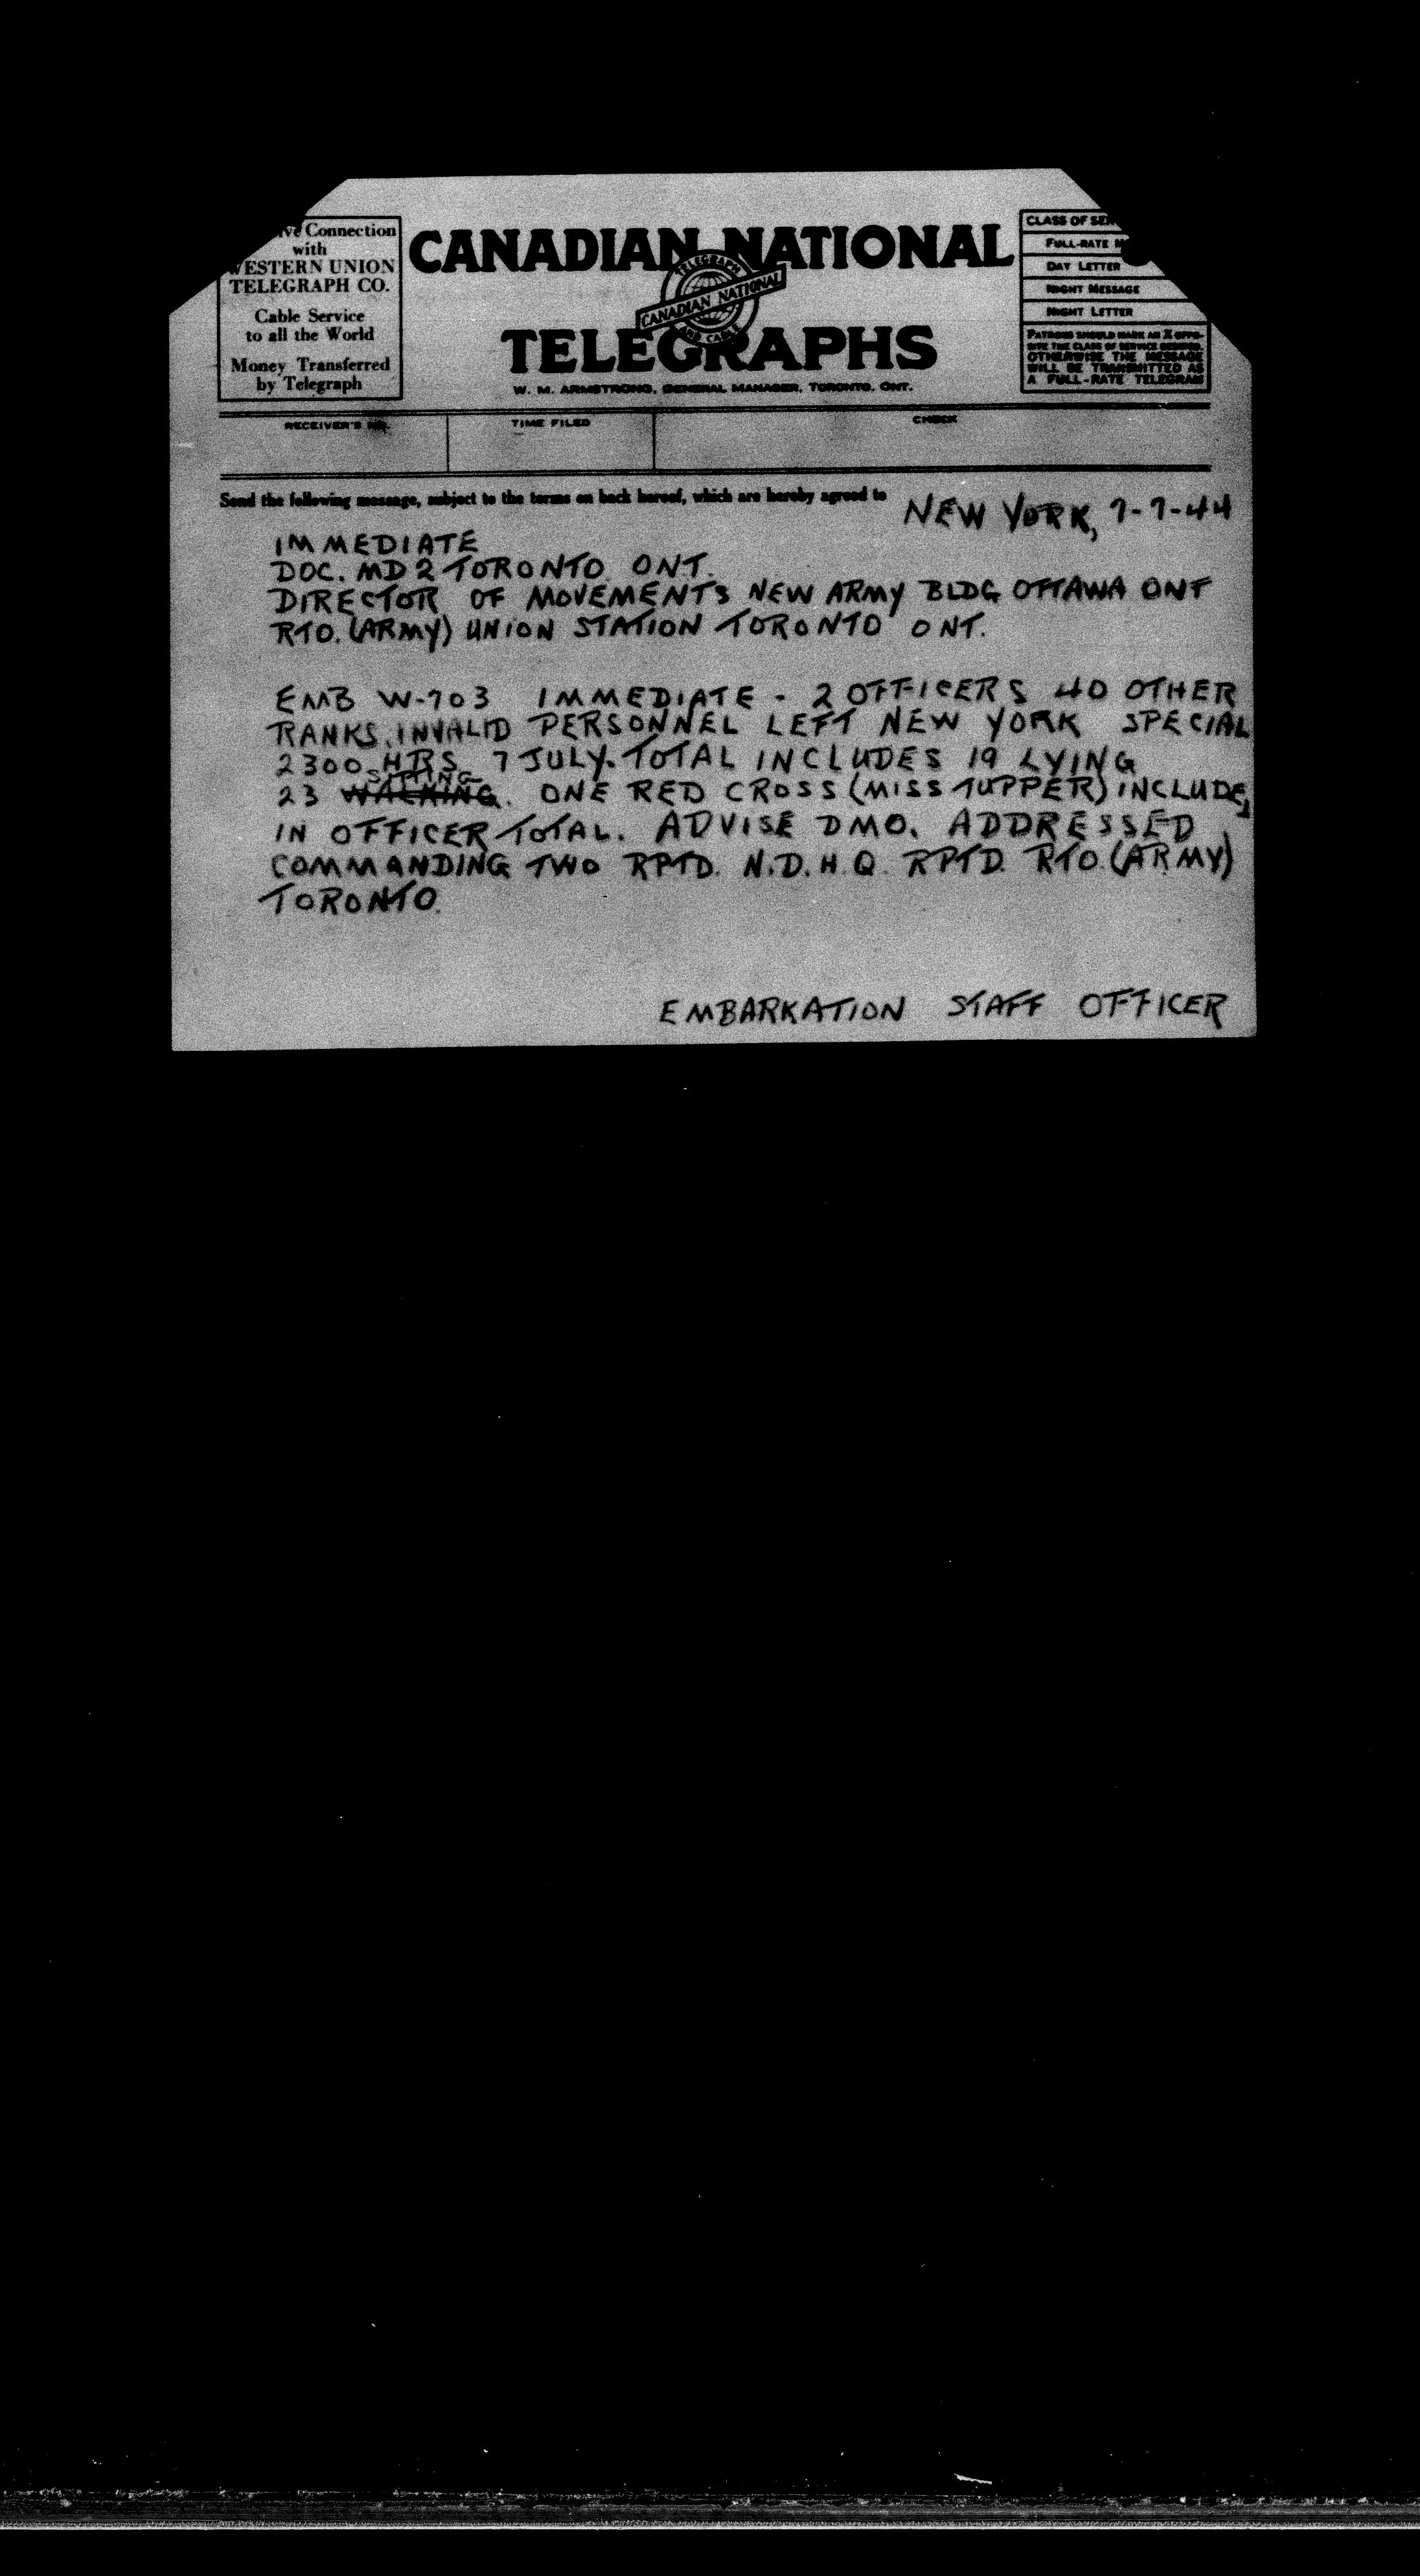 ve Connection
with
WESTERN UNION
TELEGRAPH CO.
Cable Service
to all the World
Money Transferred
by Telegraph
CANADIAN NATIONAL
TELEGRAPH
CANADIAN NATIONAL
AND CABLE
TELEGRAPHS
W. M. ARMSTRONG, GENERAL MANAGER, TORONTO, ONT.
CLASS OF SE
FULL-RATE M
DAY LETTER
NIGHT MESSAGE
NIGHT LETTER
PATRONS SHOULD MARK AN X OPPO-
SITE THE CLASS OF SERVICE DESIRED,
OTHERWISE THE MESSAGE
WILL BE TRANSMITTED AS
A FULL-RATE TELEGRAM
RECEIVER'S NO. TIME FILED CHECK
Send the following message, subject to the terms on back hereof, which are hereby agreed to
NEW YORK, 7-7-44
IMMEDIATE
DOC. MD 2 TORONTO ONT.
DIRECTOR OF MOVEMENTS NEW ARMY BLDG OTTAWA ONT
RTO. (ARMY) UNION STATION TORONTO ONT.
EMB W-703 IMMEDIATE - 2 OFFICERS 40 OTHER
RANKS, INVALID PERSONNEL LEFT NEW YORK SPECIAL
2300 HRS 7 JULY. TOTAL INCLUDES 19 LYING
SITTING
23 WALKING. ONE RED CROSS (MISS TUPPER) INCLUDED
IN OFFICER TOTAL. ADVISE DMO. ADDRESSED
COMMANDING TWO RPTD. N.D.H.Q. RPTD. RTO. (ARMY)
TORONTO.
EMBARKATION STAFF OFFICER